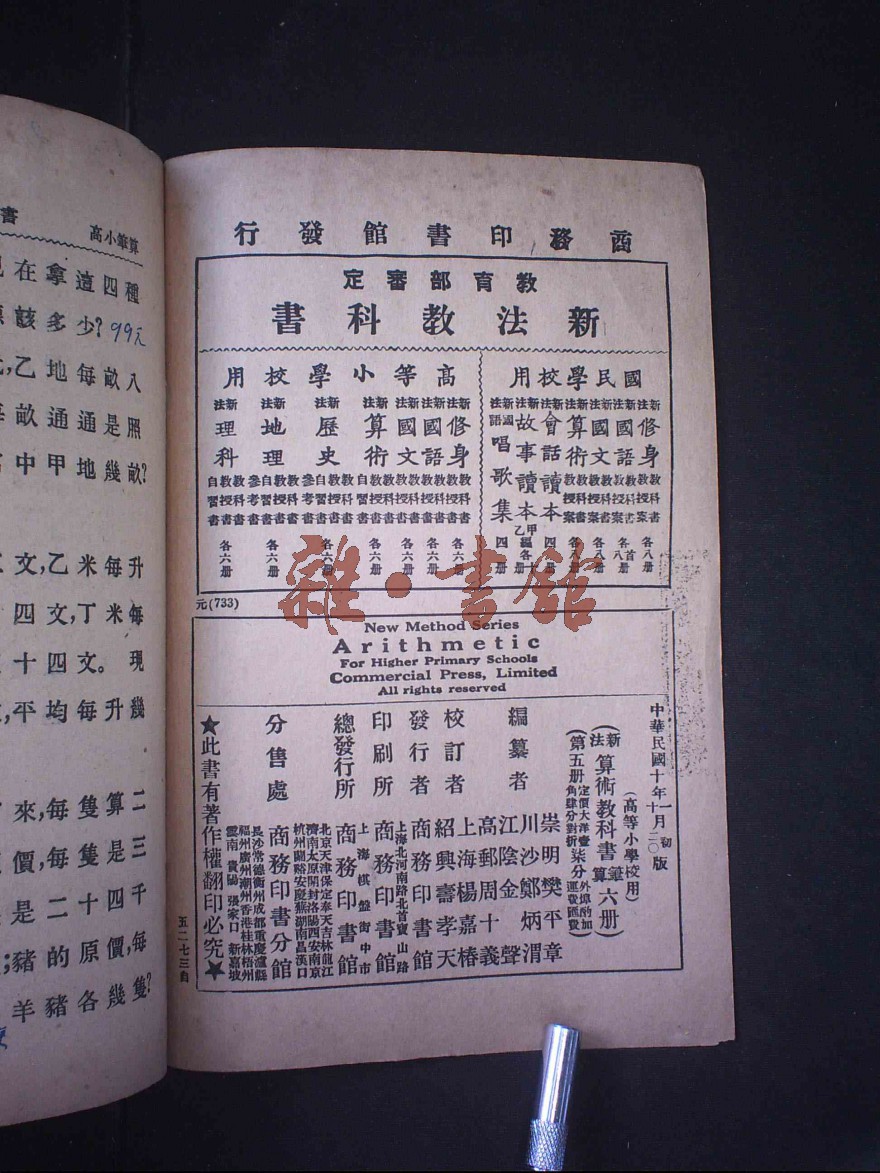 商務印書館發行
教育部審定
新法教科書
國民學校用
新法修身 教科書 教授案 各八冊
新法國語 教科書 教授案 首冊 各八冊
新法國文 教科書 教授案 各八冊
新法算術 教科書 教授案 各八冊
新法會話讀本 四冊
新法故事讀本 甲乙編各十冊
新法國語唱歌集 四冊
高等小學校用
新法修身 教科書 教授書 各六冊
新法國語 教科書 教授書 各六冊
新法國文 教科書 教授書 自習書 各六冊
新法算術 教科書 教授書 自習書 各六冊
新法歷史 教科書 教授書 自習書 參考書 各六冊
新法地理 教科書 教授書 自習書 參考書 各六冊
新法理科 教科書 教授書 自習書 各六冊
元(733)
雜·書館
New Method Series
Arithmetic
For Higher Primary Schools
Commercial Press, Limited
All rights reserved
中華民國十年十一月初版
(高等小學校用)
(新法算術教科書筆算六冊)
(第五冊定價大洋壹角肆分對折柒分外埠酌加運費匯費)
編纂者 崇明樊平章
川沙鄭炳渭
江陰金聲
高郵周十義
校訂者 上海楊嘉椿
紹興壽孝天
發行者 商務印書館
印刷所 上海北河南路北首寶山路
商務印書館
總發行所 上海棋盤街中市
商務印書館
分售處 商務印書分館
北京天津保定奉天吉林龍江
濟南太原開封洛陽西安南京
杭州蘭谿安慶蕪湖南昌漢口
長沙常德衡州成都重慶瀘縣
福州廣州潮州香港桂林梧州
雲南貴陽張家口新嘉坡
★此書有著作權翻印必究★
五二七三自
書
高小筆算
在拿這四種
該多少?99元
,乙地每畝八
畝通通是照
中甲地幾畝?
文,乙米每升
四文,丁米每
十四文。現
,平均每升幾
來,每隻算二
價,每隻是三
是二十四千
;豬的原價,每
羊豬各幾隻?